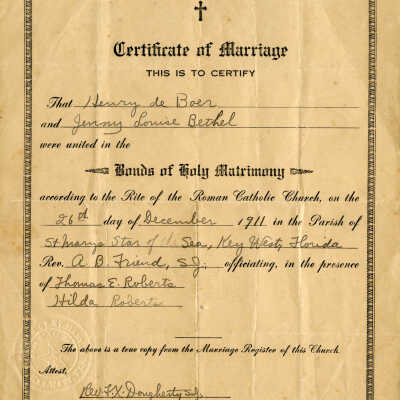 Certificate of Marriage
THIS IS TO CERTIFY
That Henry de Boer
and Jenny Louise Bethel
were united in the
Bonds of Holy Matrimony
according to the Rite of the Roman Catholic Church, on the
26th day of December 1911 in the Parish of
St Marys Star of the Sea, Key West, Florida
Rev. A. B. Friend, S.J. officiating, in the presence
of Thomas E. Roberts
Hilda Roberts
The above is a true copy from the Marriage Register of this Church.
Attest,
Rev F. X. Dougherty S.J.